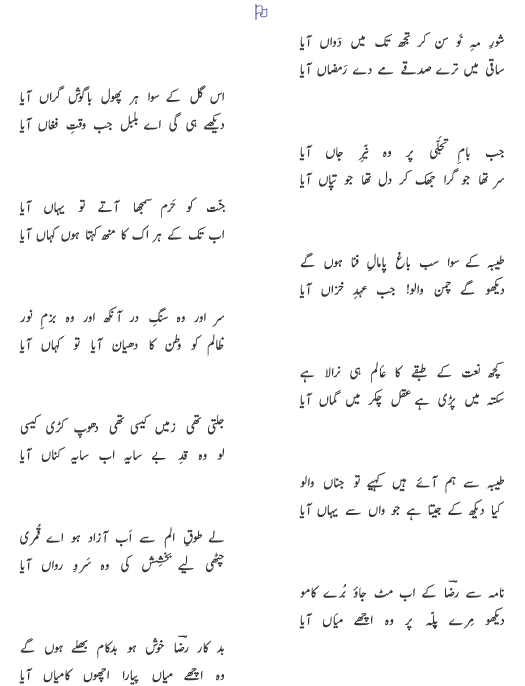 شورِ مہِ نَو سن کر تجھ تک میں دَواں آیا
ساقی میں ترے صدقے مے دے رَمضاں آیا
اس گل کے سوا ہر پھول باگوشِ گراں آیا
دیکھے ہی گی اے بلبل جب وقتِ فغاں آیا
جب بامِ تجلّی پر وہ نیّرِ جاں آیا
سر تھا جو گرا جھک کر دل تھا جو تپاں آیا
جنّت کو حَرم سمجھا آتے تو یہاں آیا
اب تک کے ہر اک کا منھ کہتا ہوں کہاں آیا
طیبہ کے سوا سب باغ پامالِ فنا ہوں گے
دیکھو گے چمن والو! جب عہدِ خزاں آیا
سر اور وہ سنگِ در آنکھ اور وہ بزمِ نور
ظالم کو وطن کا دھیان آیا تو کہاں آیا
کچھ نعت کے طبقے کا عالم ہی نرالا ہے
سکتہ میں پڑی ہے عقل چکر میں گماں آیا
جلتی تھی زمیں کیسی تھی دھوپ کڑی کیسی
لو وہ قدِ بے سایہ اب سایہ کناں آیا
طیبہ سے ہم آئے ہیں کہیے تو جناں والو
کیا دیکھ کے جیتا ہے جو واں سے یہاں آیا
لے طوقِ الم سے اَب آزاد ہو اے قُمری
چٹھی لیے بخشِش کی وہ سَروِ رواں آیا
نامہ سے رضاؔ کے اب مٹ جاؤ بُرے کامو
دیکھو مِرے پلّہ پر وہ اچھے میاں آیا
بد کار رضاؔ خوش ہو بدکام بھلے ہوں گے
وہ اچھے میاں پیارا اچھوں کا میاں آیا